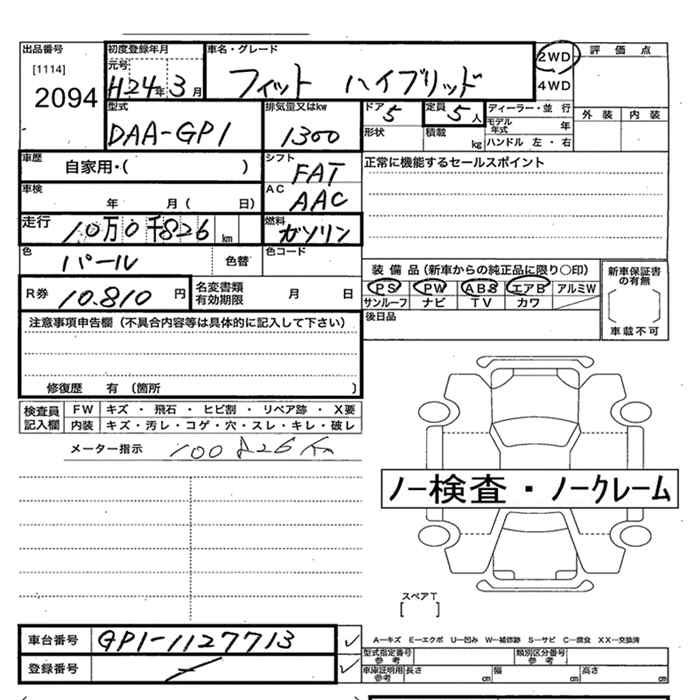 出品番号 初度登録年月 車名・グレード 2WD 評価点
[1114] 元号 H24年3月 フィット ハイブリッド 4WD
2094 型式 排気量又はkw ドア 5 定員 5人 ディーラー・並 行 外装 内装
DAA-GP1 1300 形状 積載 kg モデル年式 年
ハンドル 左・右
車歴 自家用・( ) シフト FAT 正常に機能するセールスポイント
車検 年 月( 日) AC AAC
走行 10万0千826km 燃料 ガソリン
色 パール 色替 色コード
装備品(新車からの純正品に限り○印) 新車保証書の有無
R券 10.810円 名変書類有効期限 月 日 PS PW ABS エアB アルミW
サンルーフ ナビ TV カワ
注意事項申告欄(不具合内容等は具体的に記入して下さい) 後日品 車載不可
修復歴 有(箇所 )
検査員記入欄 FW キズ・飛石・ヒビ割・リペア跡・X要
内装 キズ・汚レ・コゲ・穴・スレ・キレ・破レ
メーター指示 100826Km
ノー検査・ノークレーム
スペアT
[ ]
車台番号 GP1-1127713 A-キズ E-エクボ U-凹み W-補修跡 S-サビ C-腐食 XX-交換済
型式指定番号 参考 類別区分番号 参考
登録番号 車庫証明用 参考 長さ cm 幅 cm 高さ cm